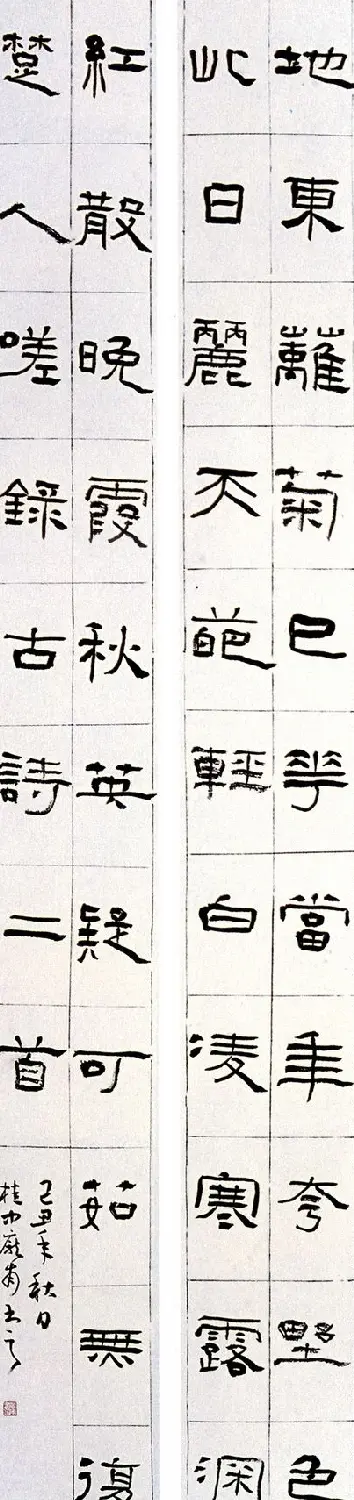 地東蘺菊已華當年夸墅色
此日麗天葩輕白凌寒露深
紅散晚霞秋英疑可茹無復
楚人嗟錄古詩二首
己丑年秋日